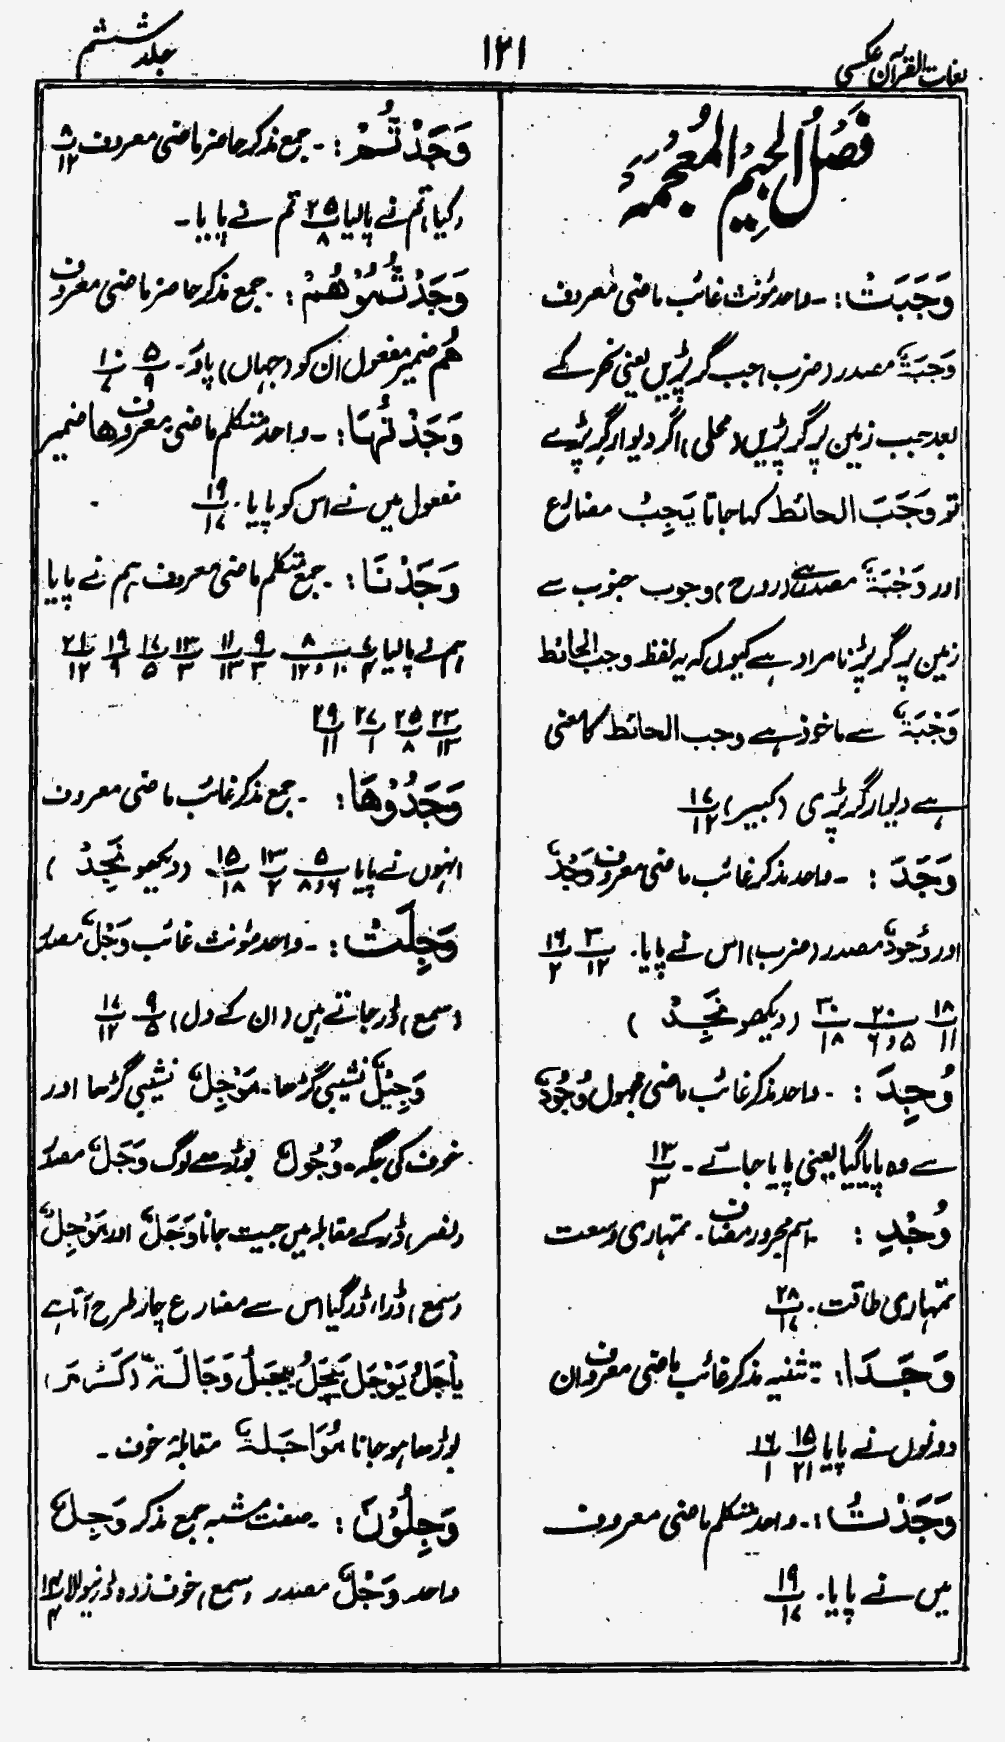 لغات القرآن عکسی
۱۲۱
جلد ششم
فَصْلُ الجِیْمِ الْمُعْجَمَةِ
وَجَبَتْ :۔ واحد مؤنث غائب ماضی معروف
وَجَبَۃٌ مصدر (ضرب) جب گر پڑیں یعنی نحر کے
بعد جب زمین پر گر پڑیں (محلی) اگر دیوار گر پڑے
تو وَجَبَ الحائط کہا جاتا یَجِبُ مضارع
اور وَجْبَۃٌ مصدر ہے (روح) وجوب جنوب سے
زمین پر گر پڑنا مراد ہے کیوں کہ یہ لفظ وجب الحائط
وَجْبَۃً سے ماخوذ ہے وجب الحائط کا معنی
ہے دیوار گر پڑی (کبیر) ۱۷/۱۲
وَجَدَ :۔ واحد مذکر غائب ماضی معروف وَجْدٌ
اور وُجُودٌ مصدر (ضرب) اس نے پایا۔ ۳/۱۲ ۱۶/۲
۱۸/۱۱ ۲۰/۵،۶ ۳۰/۱۸ (دیکھو نَجِدُ)
وُجِدَ :۔ واحد مذکر غائب ماضی مجہول وُجُودٌ
سے وہ پایا گیا یعنی پایا جائے۔ ۱۳/۳
وُجْدِ :۔ اسم مجرور مضاف۔ تمہاری وسعت
تمہاری طاقت۔ ۲۸/۱۷
وَجَدَا :۔ تثنیہ مذکر غائب ماضی معروف ان
دونوں نے پایا ۱۵/۲۱ ۱۶/۱
وَجَدْتُ :۔ واحد متکلم ماضی معروف
میں نے پایا۔ ۱۹/۱۷
وَجَدْتُّمْ :۔ جمع مذکر حاضر ماضی معروف ۸/۱۲
(کیا) تم نے پالیا ۲۵/۸ تم نے پایا۔
وَجَدْتُّمُوْهُمْ :۔ جمع مذکر حاضر ماضی معروف
هُمْ ضمیر مفعول ان کو (جہاں) پاؤ۔ ۵/۹ ۱۰/۷
وَجَدْتُّهَا :۔ واحد متکلم ماضی معروف ھا ضمیر
مفعول میں نے اس کو پایا۔ ۱۹/۱۷
وَجَدْنَا :۔ جمع متکلم ماضی معروف ہم نے پایا
ہم نے پالیا ۷/۴ ۸/۱۰،۱۲ ۹/۳ ۱۱/۱۳ ۱۳/۳ ۱۷/۵ ۱۹/۹ ۲۱/۱۲
۲۳/۱۳ ۲۵/۸ ۲۷/۱ ۲۹/۱۱
وَجَدُوْهَا :۔ جمع مذکر غائب ماضی معروف
انہوں نے پایا ۵/۶،۸ ۱۳/۲ ۱۵/۱۸ (دیکھو نَجِدُ)
وَجِلَتْ :۔ واحد مؤنث غائب وَجَلٌ مصدر
(سمع) ڈر جاتے ہیں (ان کے دل) ۹/۵ ۱۷/۱۲
وَجِیْلٌ نشیبی گڑھا۔ مَوْجِلٌ نشیبی گڑھا اور
خوف کی جگہ۔ وُجُولٌ بوڑھے لوگ وَجَلٌ مصدر
(نصر) ڈر کے مقابلہ میں جیت جانا وَجَلٌ اور مَوْجِلٌ
(سمع) ڈرا، ڈر گیا اس سے مضارع چار طرح آتا ہے
یَاجَلُ یَوْجَلُ یَیْجَلُ یِیْجَلُ وَجَالَۃٌ (کَرُمَ)
بوڑھا ہو جانا مُوَاجَلَۃٌ مقابلۂ خوف۔
وَجِلُوْنَ :۔ صفت مشبہ جمع مذکر وَجِلٌ
واحد وَجَلٌ مصدر (سمع) خوف زدہ ڈرنیوالا ۱۴/۴